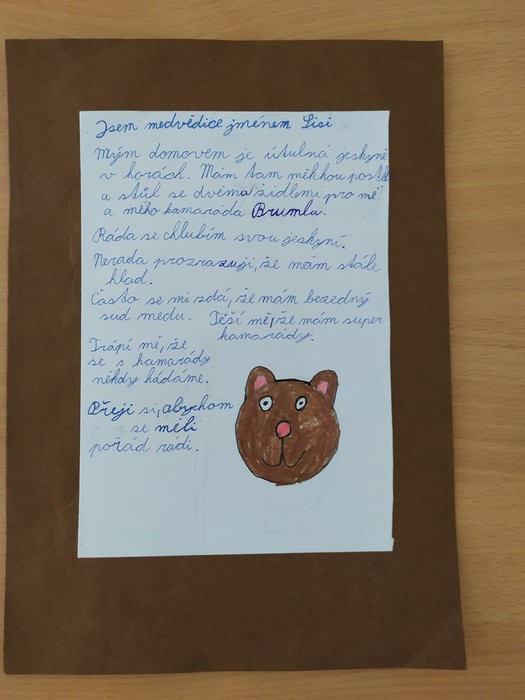 Jsem medvědice jménem Lisi
Mým domovem je útulná jeskyně
v horách. Mám tam měkkou postel
a stůl se dvěma židlemi pro mě
a mého kamaráda Brumlu.
Ráda se chlubím svou jeskyní.
Nerada prozrazuji, že mám stále
hlad.
Často se mi zdá, že mám bezedný
sud medu. Těší mě, že mám super
kamarády.
Trápí mě, že
se s kamarády
někdy hádáme.
Přeji si, abychom
se měli
pořád rádi.